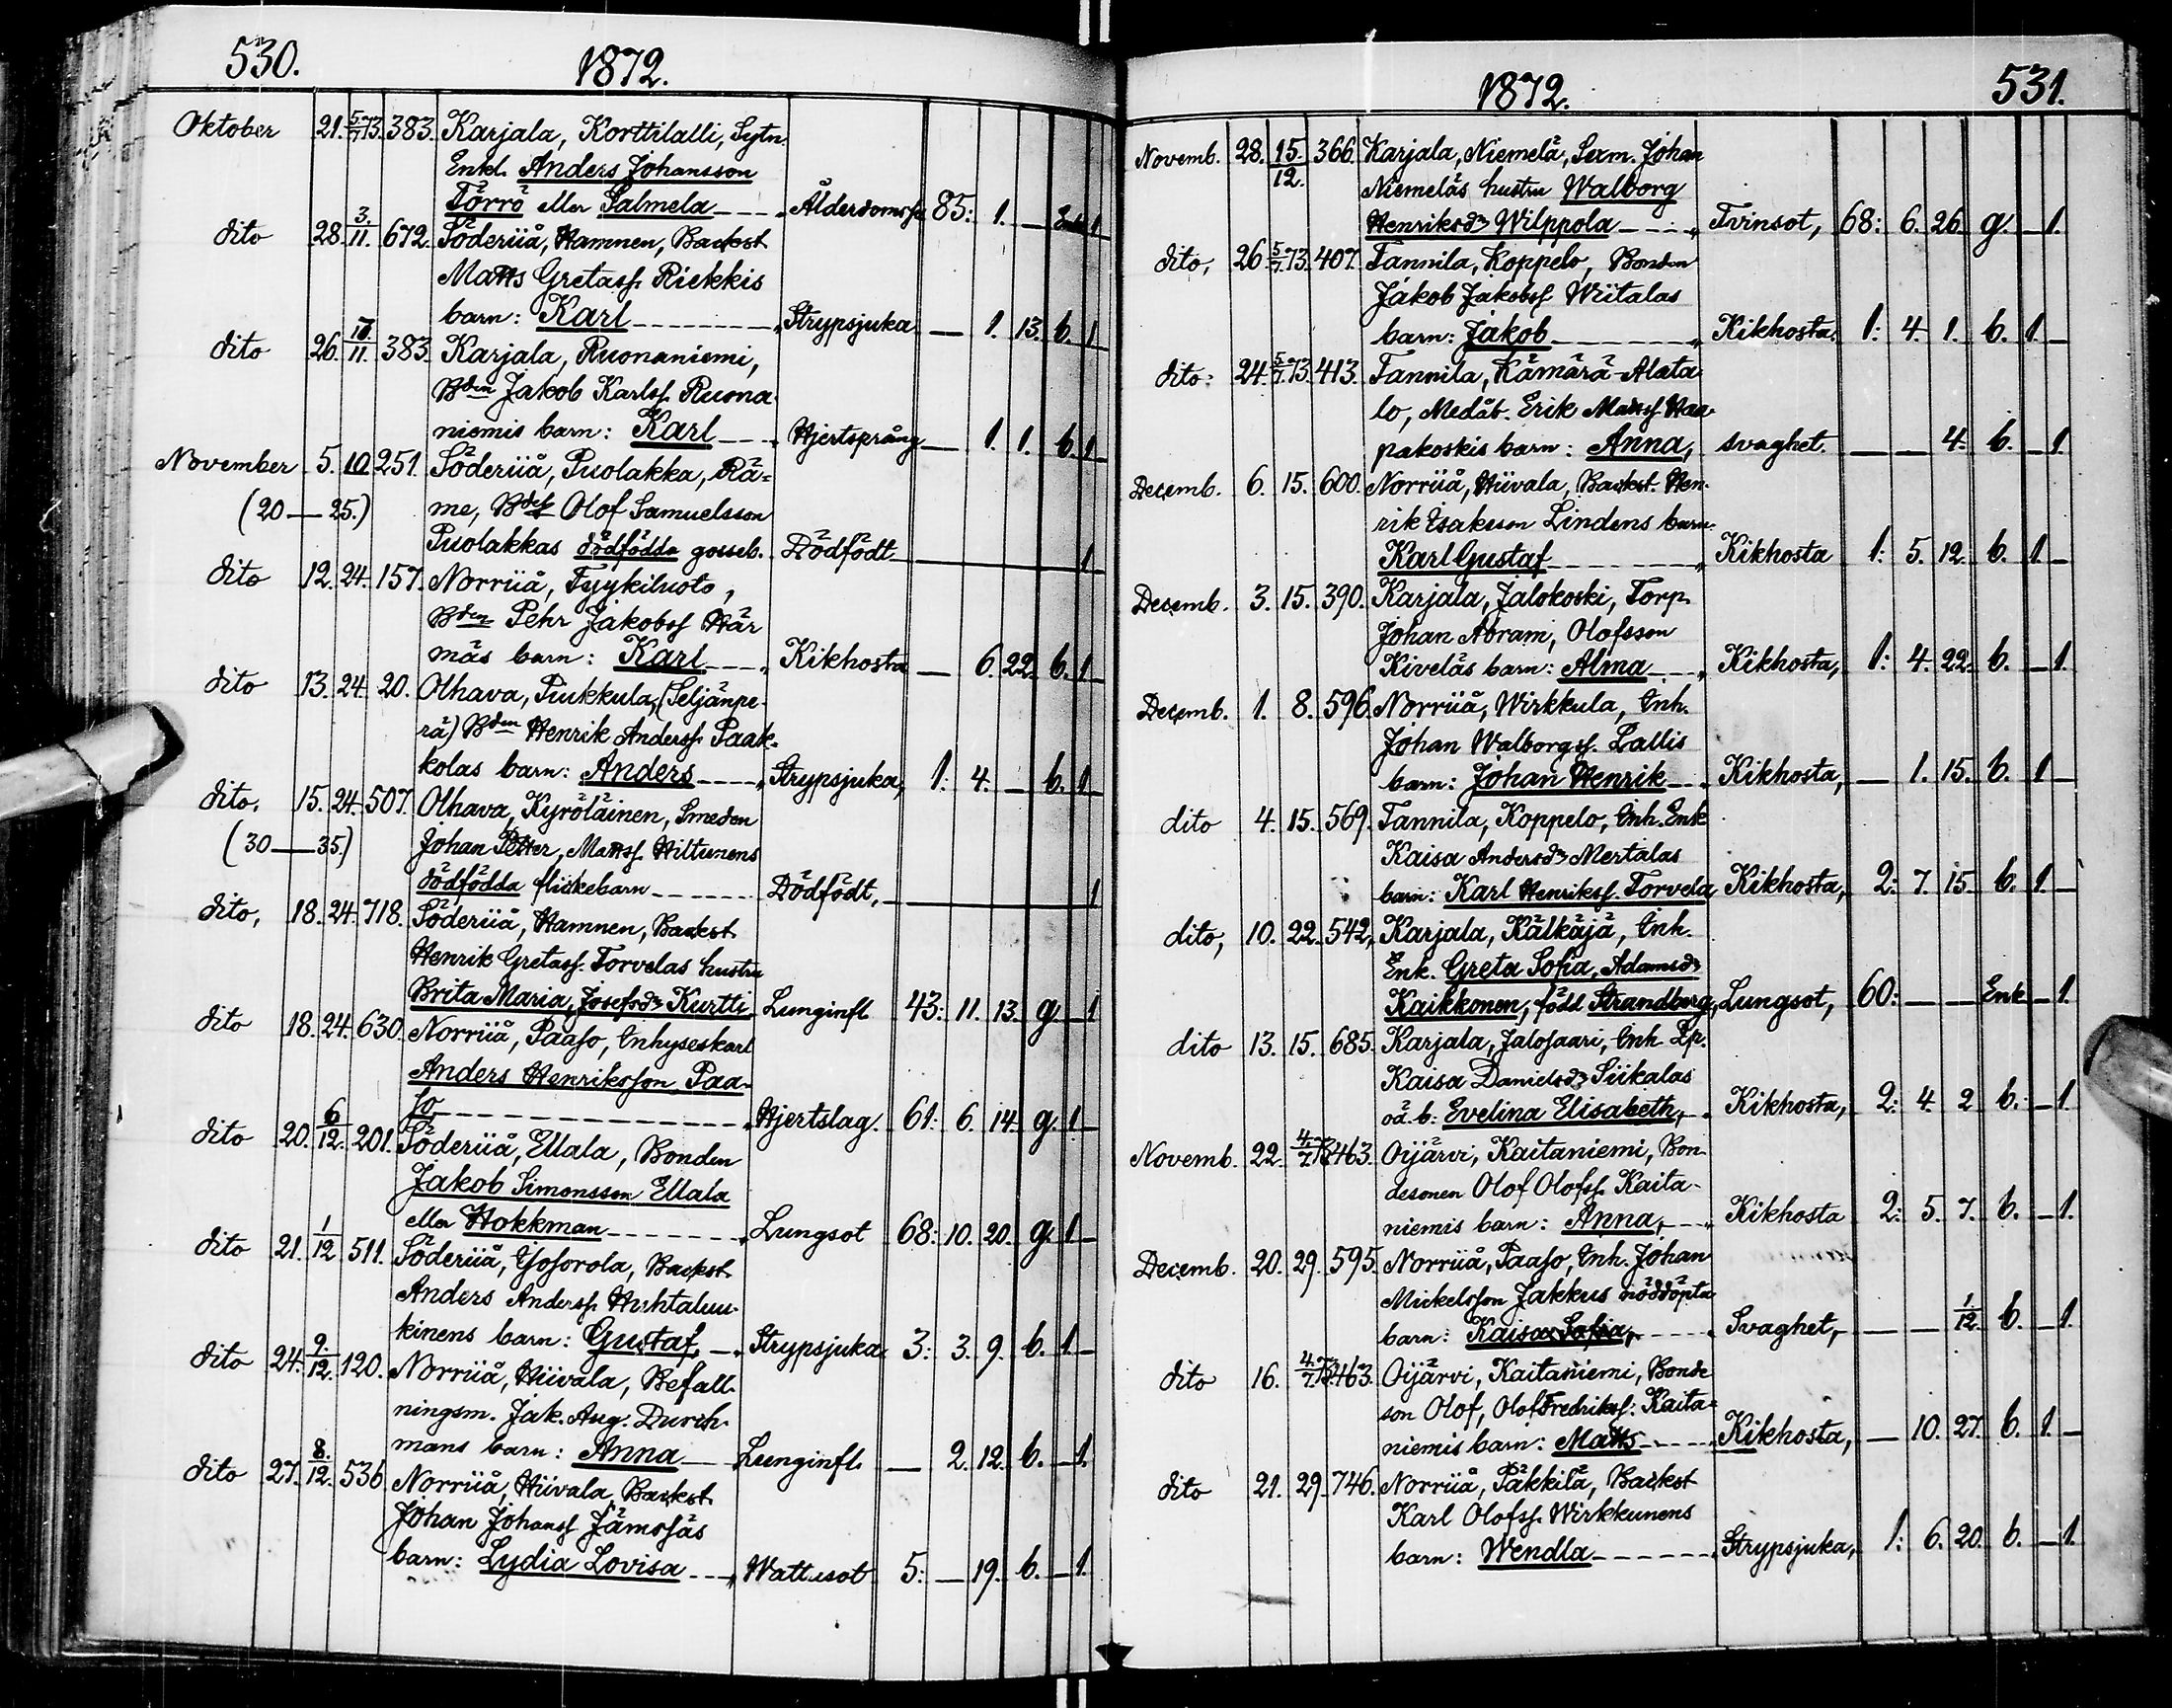 530.
1872.
Oktober 21. 5/7 73. 383. Karjala, Korttilalli, Sytn.
Enkl. Anders Johansson
Törrö eller Salmela Ålderdomssv. 85: 1. — Enkl. 1
dito 28. 3./11. 672. Söderijå, Hamnen, Backst.
Matts Gretass. Riekkis
barn: Karl Strypsjuka — 1. 13. b. 1
dito 26. 17./11. 383. Karjala, Ruonaniemi,
Bden Jakob Karlss. Ruona-
niemis barn: Karl Hjertsprång — 1. 1. b. 1
November 5. 10. 251. Söderijå, Puolakka, Rä-
(20—25.) me, Bdes Olof Samuelsson
Puolakkas dödfödda gosseb. Dödfödt 1
dito 12. 24. 157. Norrijå, Tyykiluoto,
Bden Pehr Jakobss Här
mäs barn: Karl Kikhosta — 6. 22. b. 1
dito 13. 24. 20. Olhava, Pukkula, (Seljänpe-
rä) Bden Henrik Anderss. Paak-
kolas barn: Anders Strypsjuka, 1: 4. — b. 1
dito, 15. 24. 507. Olhava, Kyröläinen, Smeden
(30—35.) Johan Petter, Matts. Hiltunens
dödfödda flickebarn Dödfödt, 1
dito, 18. 24. 718. Söderijå, Hamnen, Backst.
Henrik Gretass. Torvelas hustru
Brita Maria, Josefsdr Kurtti Lunginfl 43: 11. 13. g. — 1
dito 18. 24. 630. Norrijå, Paaso, Inhyseskarl
Anders Henriksson Paa-
so Hjertslag. 61: 6. 14. g. 1. —
dito 20. 6/12. 201. Söderijå, Ellala, Bonden
Jakob Simonsson Ellala
eller Hokkman Lungsot 68: 10. 20. g. 1 —
dito 21. 1/12 511. Söderijå, Backst.
Anders Anderss. Huhtaluu-
kinens barn: Gustaf Strypsjuka 3: 3. 9. b. 1. —
dito 24. 9./12. 120. Norrijå, Hiivala, Befall-
ningsm. Jak. Aug. Durch-
mans barn: Anna Lunginfl. — 2. 12. b. — 1.
dito 27. 8./12. 536 Norrijå, Hiivala, Backst.
Johan Johanss Jämssäs
barn: Lydia Lovisa Wattusot 5: — 19. b. — 1.
1872.
531.
Novemb. 28. 15./12. 366. Karjala, Niemelä, Sexm. Johan
Niemeläs hustru Walborg
Henriksdr Wilppola Tvinsot, 68: 6. 26. g. — 1.
dito, 26 5/7. 73. 407. Tannila, Koppelo, Bonden
Jakob Jakobss. Wiitalas
barn: Jakob Kikhosta. 1: 4. 1. b. 1. —
dito: 24. 5/7. 73. 413. Tannila, Kämärä-Alata-
lo, Medåb. Erik Matss. Haa-
pakoskis barn: Anna, svaghet. — — 4. b. — 1.
Decemb. 6. 15. 600. Norrijå, Hiivala, Backst. Hen-
rik Isaksson Lindens barn.
Karl Gustaf Kikhosta 1: 5. 12. b. 1. —
Decemb. 3. 15. 390. Karjala, Jalokoski, Torp.
Johan Abram, Olofsson
Kiveläs barn: Alma Kikhosta, 1: 4. 22. b. — 1.
Decemb. 1. 8. 596. Norrijå, Wirkkula, Inh.
Johan Walborgss. Lallis
barn: Johan Henrik Kikhosta, — 1. 15. b. 1 —
dito 4. 15. 569. Tannila, Koppelo, Inh. Enk
Kaisa Andersdr Mertalas
barn: Karl Henrikss. Torvela Kikhosta, 2: 7. 15. b. 1. —
dito, 10. 22. 542, Karjala, Kälkäjä, Inh.
Enk. Greta Sofia, Adamsdr
Kaikkonen, född Strandberg, Lungsot, 60: — — Enk — 1.
dito 13. 15. 685. Karjala, Jalosaari, Inh. Lp.
Kaisa Danielsdr Siikalas
oä. b: Evelina Elisabeth, Kikhosta, 2: 4. 2 b. — 1.
Novemb. 22. 4./7. 73 463. Oijärvi, Kaitaniemi, Bon-
desonen Olof Olofss. Kaita-
niemis barn: Anna, Kikhosta 2: 5. 7. b. — 1.
Decemb. 20. 29. 595. Norrijå, Paaso, Inh. Johan
Mickelsson Jakkus nöddöpta
barn: Kaisa Sofia, Svaghet, — — 1/12. b. — 1.
dito 16. 4./7. 73. 463. Oijärvi, Kaitaniemi, Bonde
son Olof, Olof Fredrikss: Kaita-
niemis barn: Matts Kikhosta, — 10. 27. b. 1. —
dito 21. 29. 746. Norrijå, Päkkilä, Backst
Karl Olofss. Wirkkunens
barn: Wendla Strypsjuka, 1: 6. 20. b. — 1.